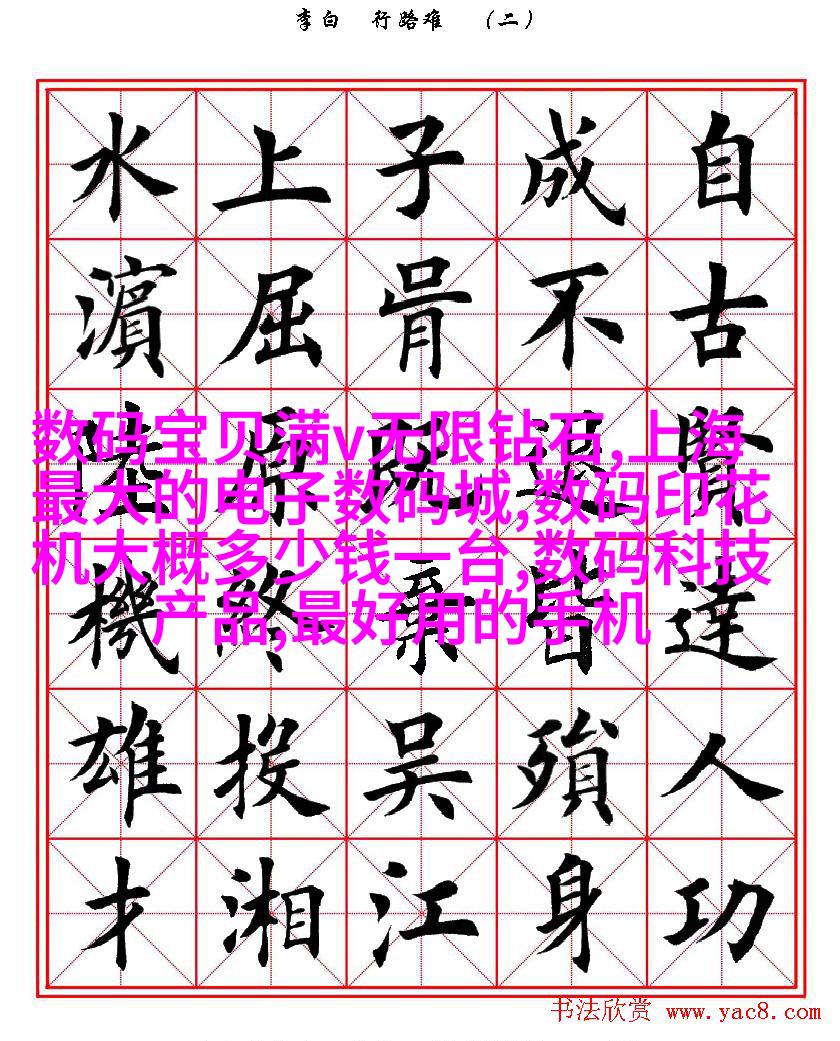 李白 行路难 （二）
自古賢達人功
成不退皆殞身
子胥既棄吳江
上屈原終投湘
水濱陸機雄才
数码宝贝满v无限钻石,上海
最大的电子数码城,数码印花
机大概多少钱一台,数码科技
产品,最好用的手机
书法欣赏 www.yac8.com